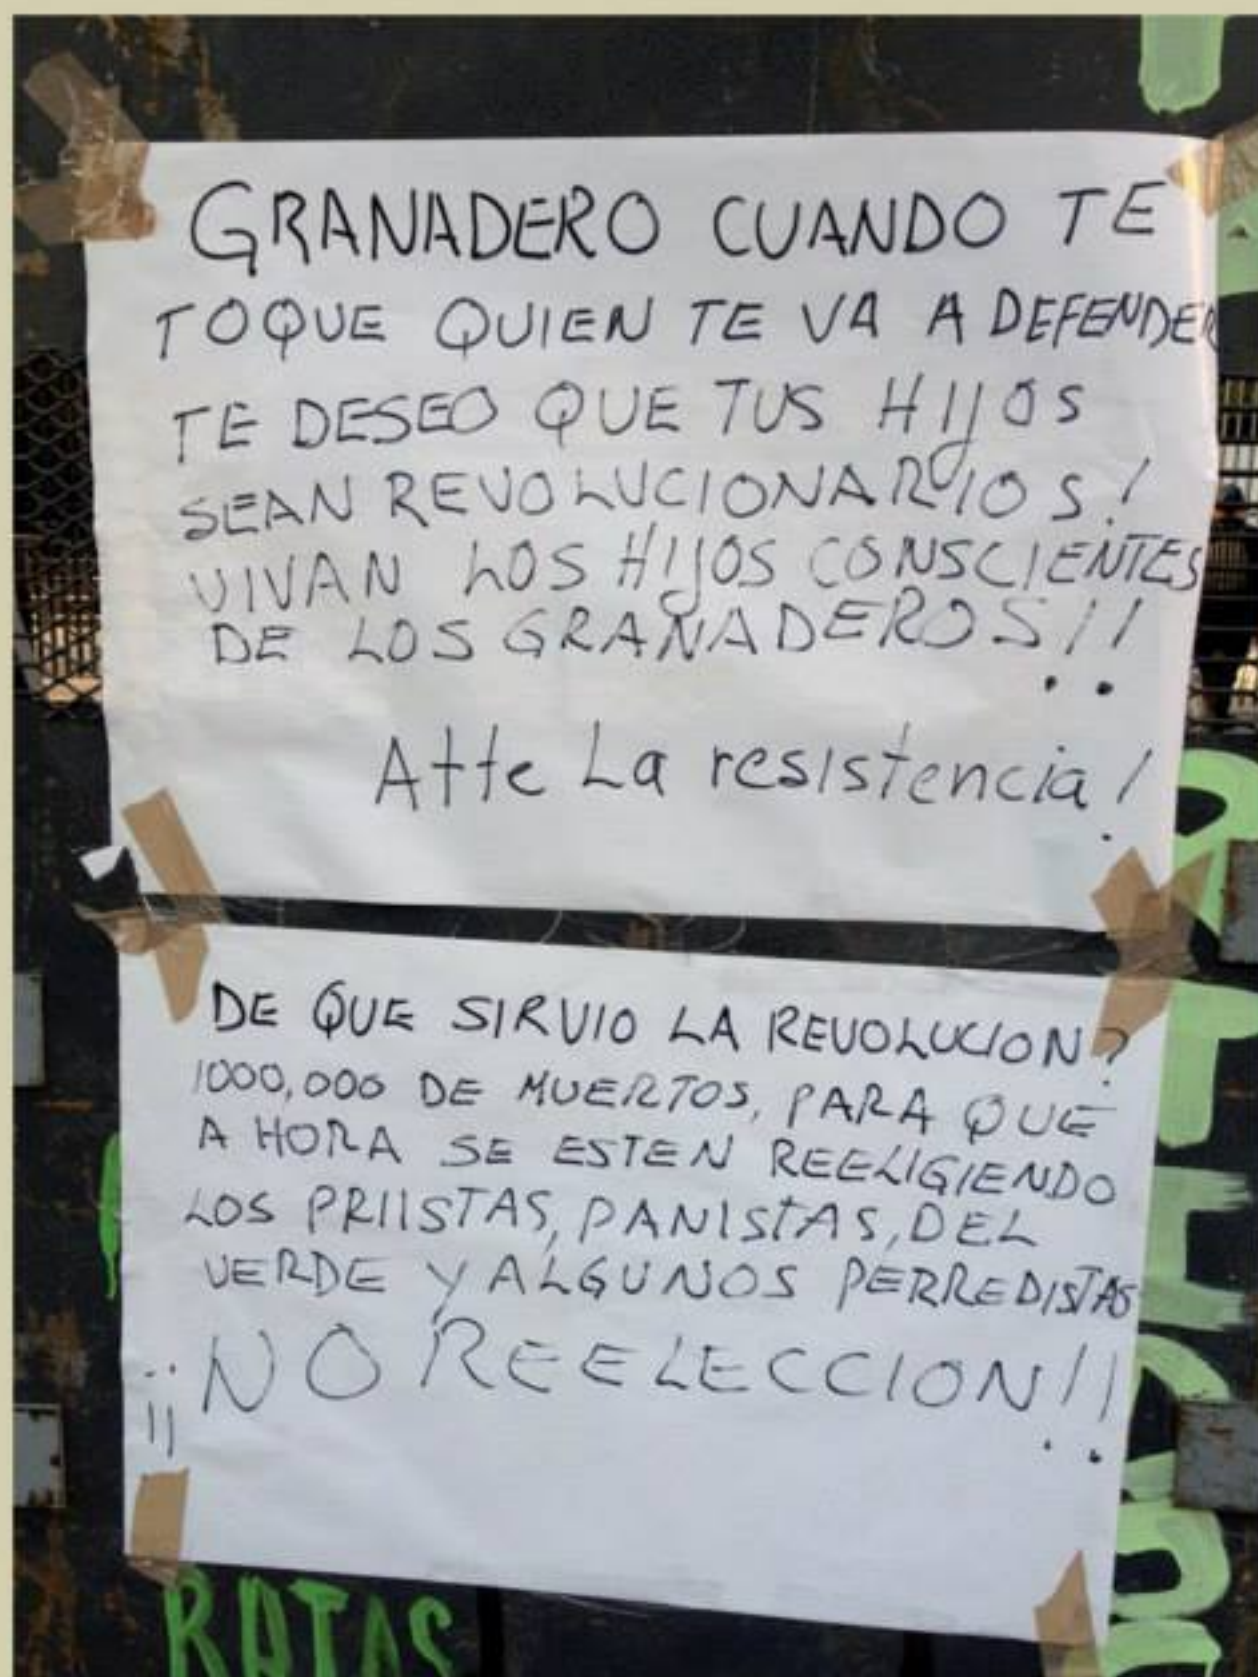 GRANADERO CUANDO TE
TOQUE QUIEN TE VA A DEFENDER
TE DESEO QUE TUS HIJOS
SEAN REVOLUCIONARIOS!
VIVAN LOS HIJOS CONSCIENTES
DE LOS GRANADEROS!!
Atte La resistencia!
DE QUE SIRVIO LA REVOLUCION?
1000,000 DE MUERTOS, PARA QUE
A HORA SE ESTEN REELIGIENDO
LOS PRIISTAS, PANISTAS, DEL
VERDE Y ALGUNOS PERREDISTAS
¡¡NO REELECCION!!
RATAS